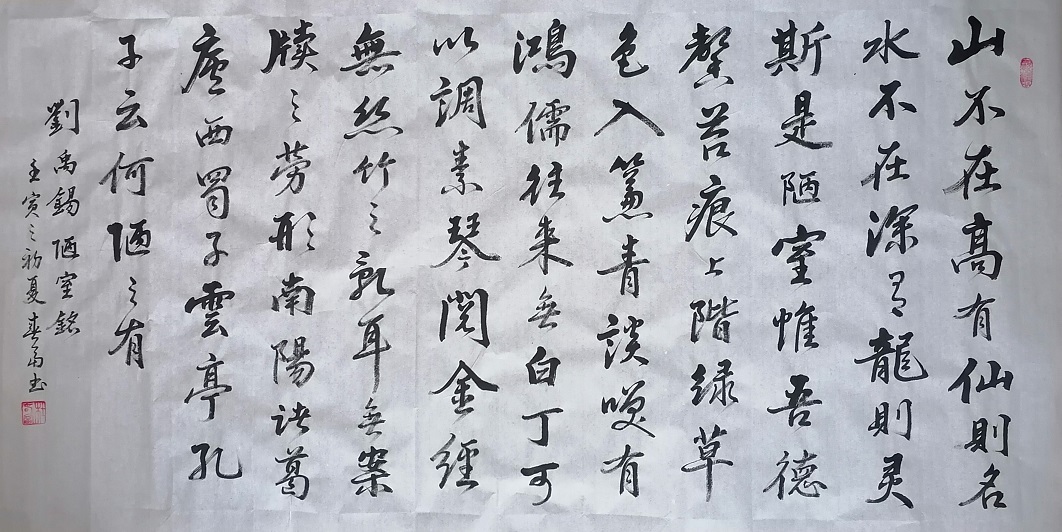 山不在高有仙則名
水不在深有龍則灵
斯是陋室惟吾德
馨苔痕上階緑草
色入簾青談笑有
鴻儒往来無白丁可
以調素琴閱金經
無絲竹之亂耳無案
牘之勞形南陽诸葛
廬西蜀子雲亭孔
子云何陋之有
劉禹錫陋室銘
壬寅之初夏